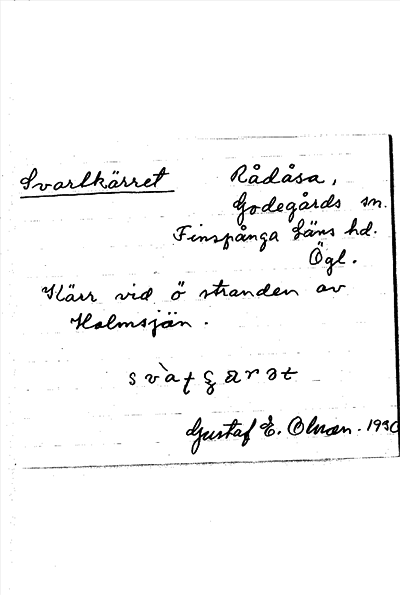 Svartkärret
Rådåsa,
Godegårds sn.
Finspånga Läns hd.
Ögl.
Kärr vid ö stranden av
Holmsjön.
Gustaf E. Olsson. 1930